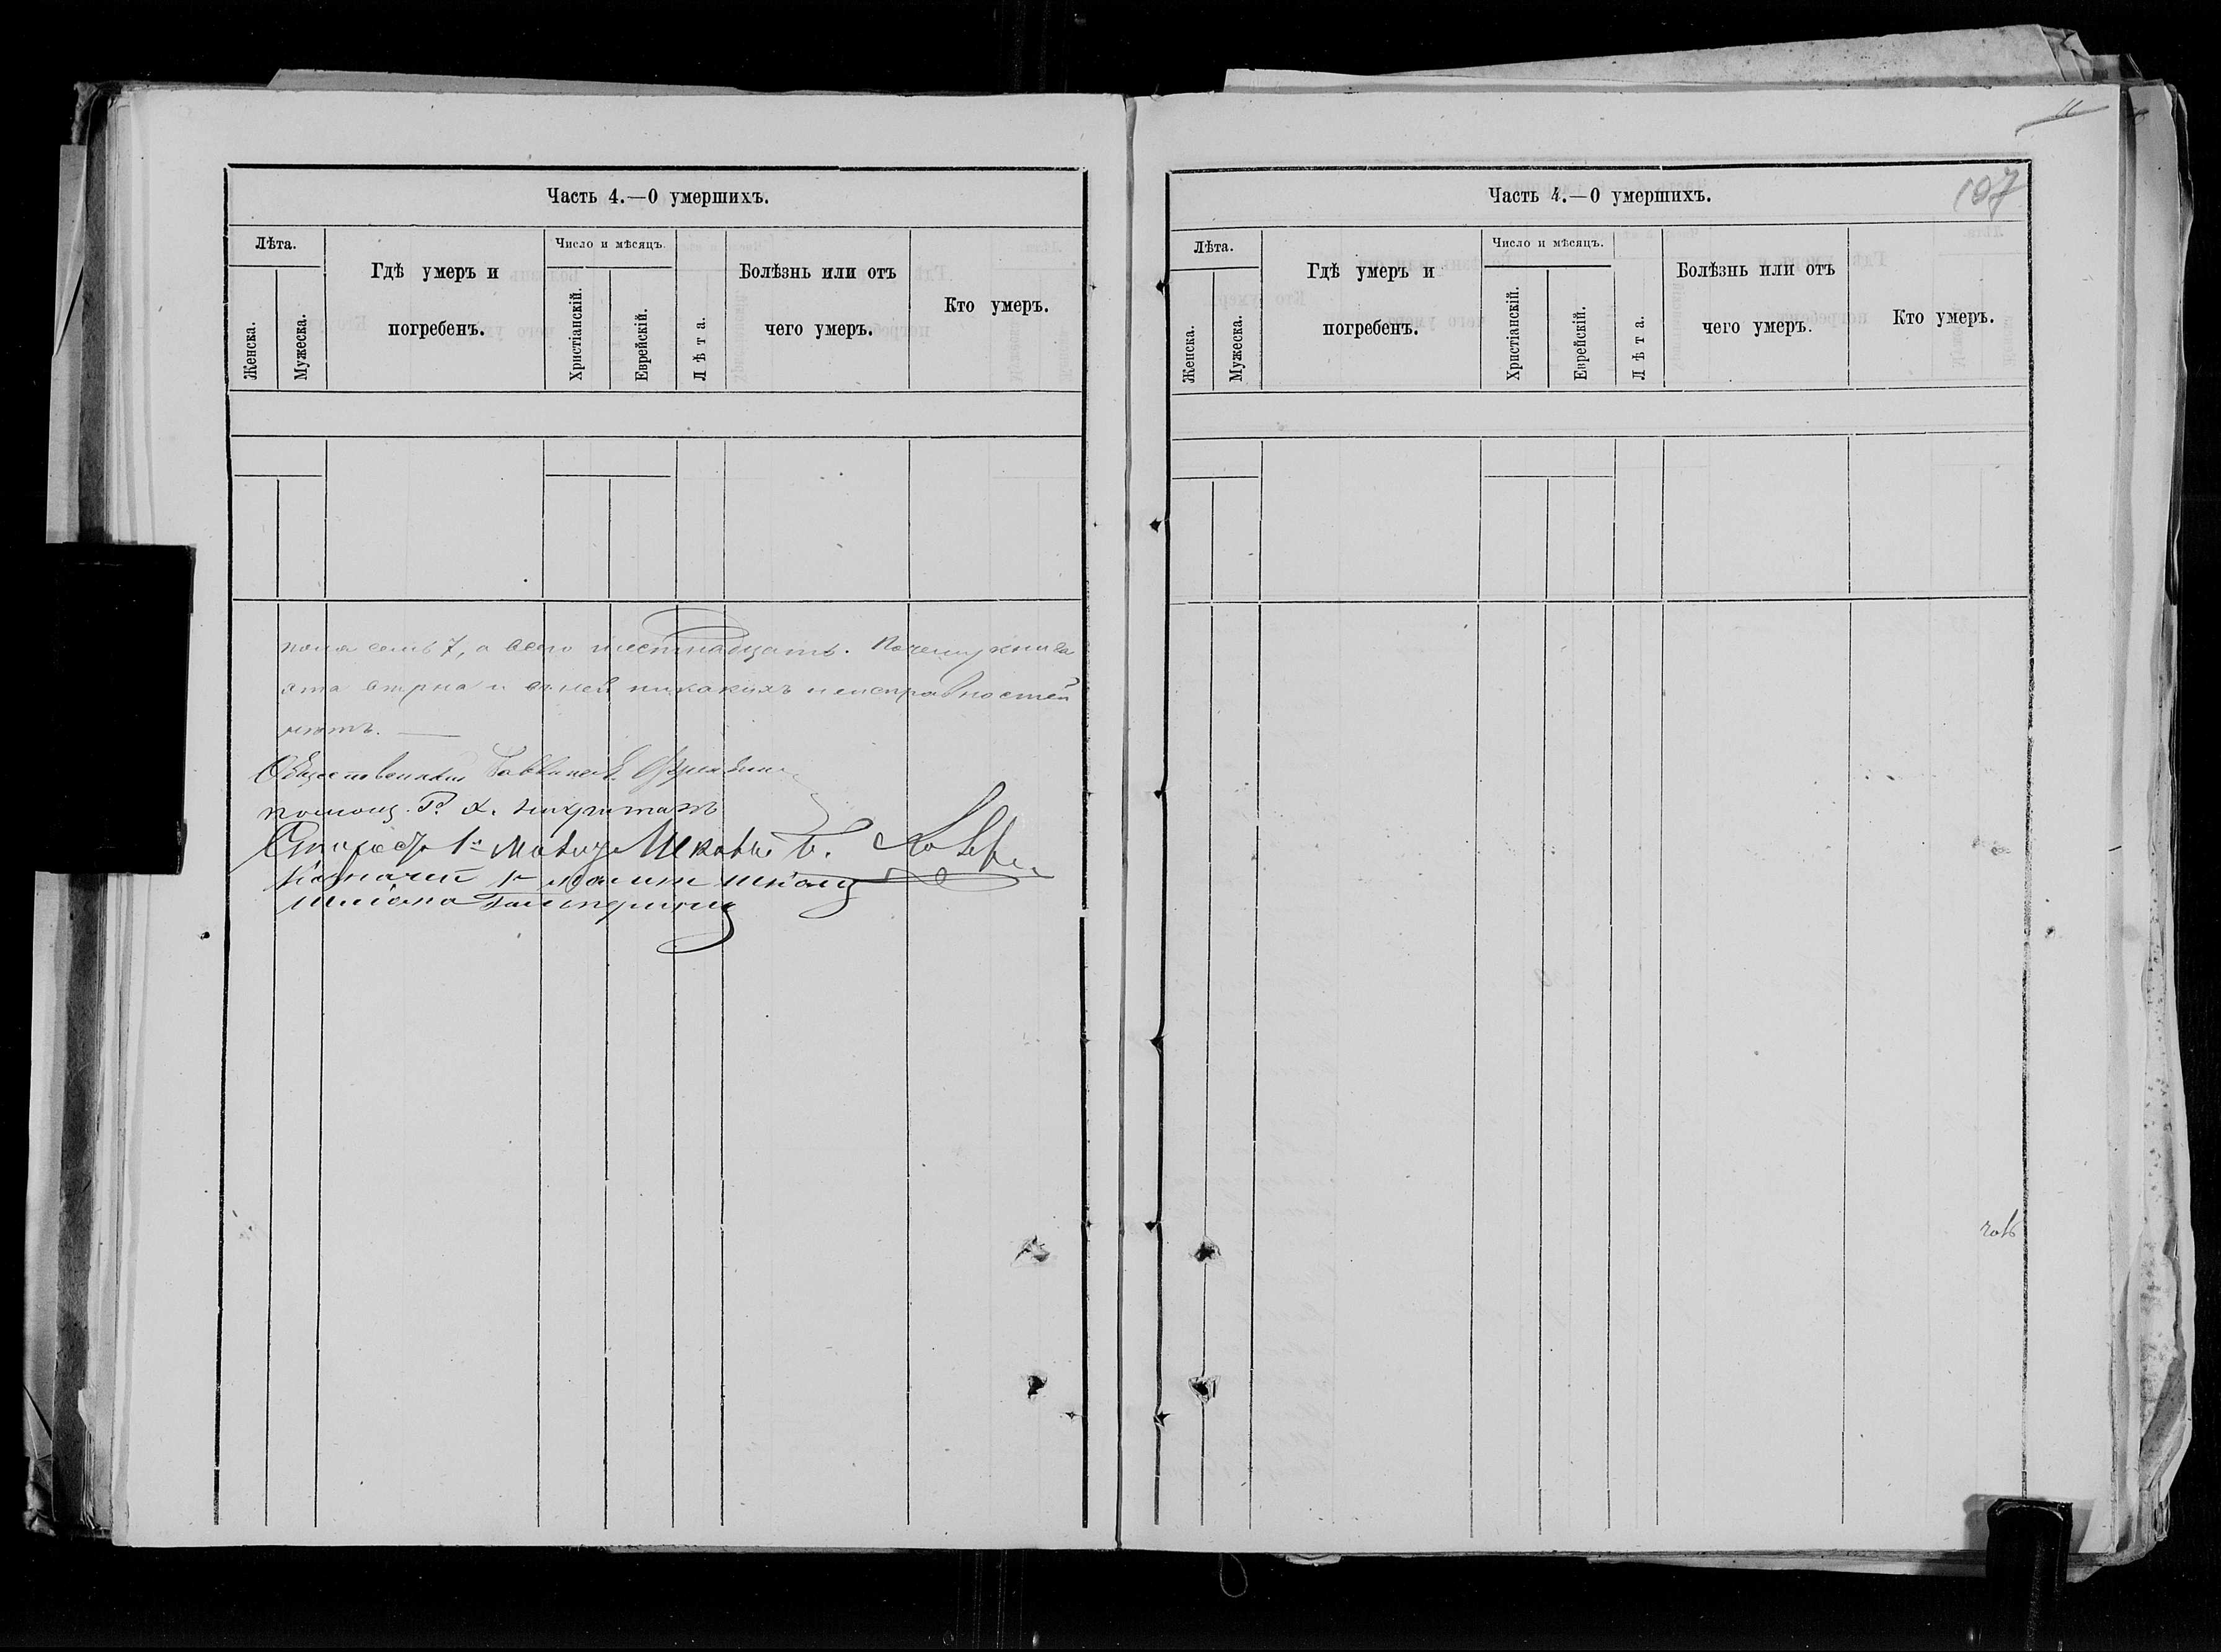 Часть 4.—О умершихъ.
Лѣта.
Женска.
Мужеска.
Гдѣ умеръ и
погребенъ.
Число и мѣсяцъ.
Христіанскій.
Еврейскій.
Лѣта.
Болѣзнь или отъ
чего умеръ.
Кто умеръ.
пола семь 7, а всего шестнадцать. Почему книга
эта вѣрна и въ ней никакихъ неисправностей
нѣтъ. —
Общественный Раввинъ
помощ. Р. Х.
Староста 1й Молит Школы
Казначей 1й молит школы
Шліома Гальперинъ
Часть 4.—О умершихъ.
107
Лѣта.
Женска.
Мужеска.
Гдѣ умеръ и
погребенъ.
Число и мѣсяцъ.
Христіанскій.
Еврейскій.
Лѣта.
Болѣзнь или отъ
чего умеръ.
Кто умеръ.